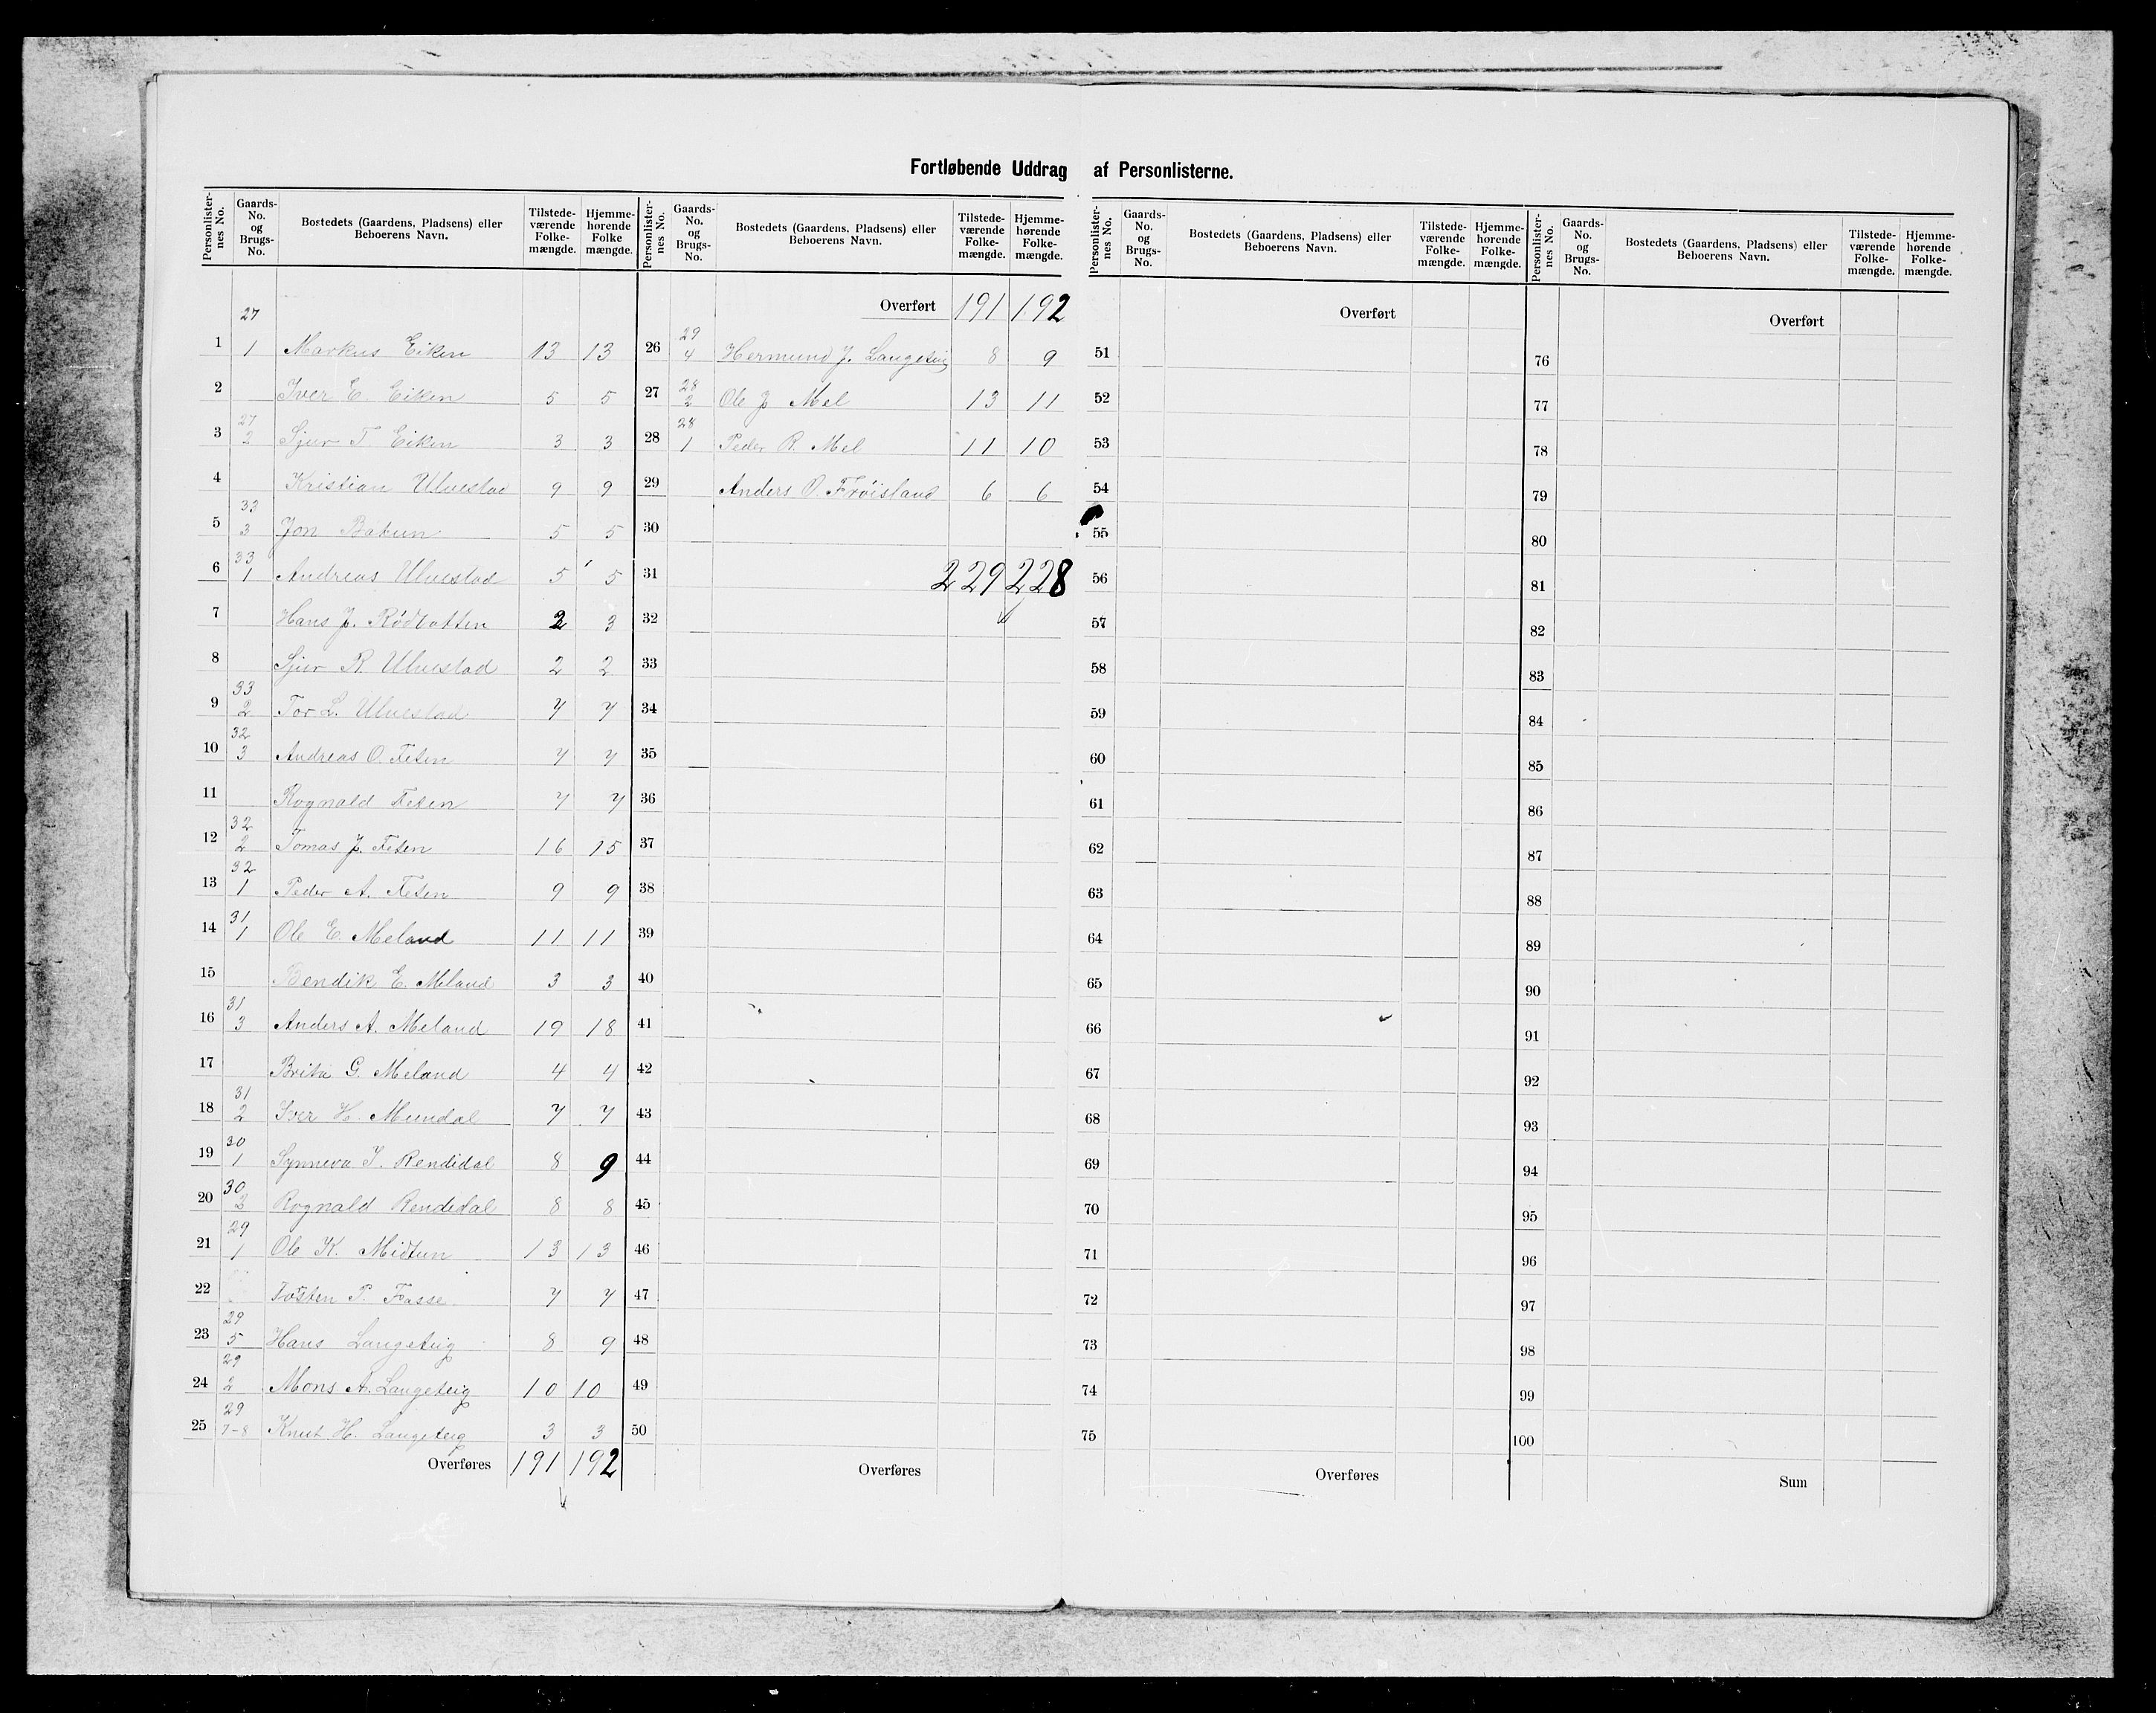 Fortløbende Uddrag af Personlisterne.
Personlisternes No. Gaards-No. og Brugs-No. Bostedets (Gaardens, Pladsens) eller Beboerens Navn. Tilstedeværende Folkemængde. Hjemmehørende Folke mængde.
1 27 1 Markus Eiken 13 13
2 Iver E. Eiken 5 5
3 27 2 Sjur T. Eiken 3 3
4 Kristian Ulvestad 9 9
5 33 3 Jon Batun 5 5
6 33 1 Andreas Ulvestad 5 5
7 Hans J. Rødbotten 2 3
8 Sjur R. Ulvestad 2 2
9 33 2 Tor L. Ulvestad 7 7
10 32 3 Andreas O. Feten 7 7
11 Rognald Feten 7 7
12 32 2 Tomas J. Feten 16 15
13 32 1 Peder A. Feten 9 9
14 31 1 Ole E. Meland 11 11
15 Bendik E. Meland 3 3
16 31 3 Anders A. Meland 19 18
17 Brita G. Meland 4 4
18 31 2 Iver H. Mundal 7 7
19 30 1 Synneva I. Rendidal 8 9
20 30 2 Rognald Rendedal 8 8
21 29 1 Ole K. Midtun 13 13
22 P. Fosse 7 7
23 29 5 Hans Langeteig 8 9
24 29 2 Mons A. Langeteig 10 10
25 29 7-8 Knut H. Langeteig 3 3
Overføres 191 192
Personlisternes No. Gaards-No. og Brugs-No. Bostedets (Gaardens, Pladsens) eller Beboerens Navn. Tilstedeværende Folkemængde. Hjemmehørende Folkemængde.
Overført 191 192
26 29 4 Hermund J. Langeteig 8 9
27 28 2 Ole J Mel 13 11
28 28 1 Peder R. Mel 11 10
29 Anders O. Frøisland 6 6
30
31 229 228
32
33
34
35
36
37
38
39
40
41
42
43
44
45
46
47
48
49
50
Overføres
Personlisternes No. Gaards-No. og Brugs-No. Bostedets (Gaardens, Pladsens) eller Beboerens Navn. Tilstedeværende Folkemængde. Hjemmehørende Folkemængde.
Overført
51
52
53
54
55
56
57
58
59
60
61
62
63
64
65
66
67
68
69
70
71
72
73
74
75
Overføres
Personlisternes No. Gaards-No. og Brugs-No. Bostedets (Gaardens, Pladsens) eller Beboerens Navn. Tilstedeværende Folkemængde. Hjemmehørende Folkemængde.
Overført
76
77
78
79
80
81
82
83
84
85
86
87
88
89
90
91
92
93
94
95
96
97
98
99
100
Sum